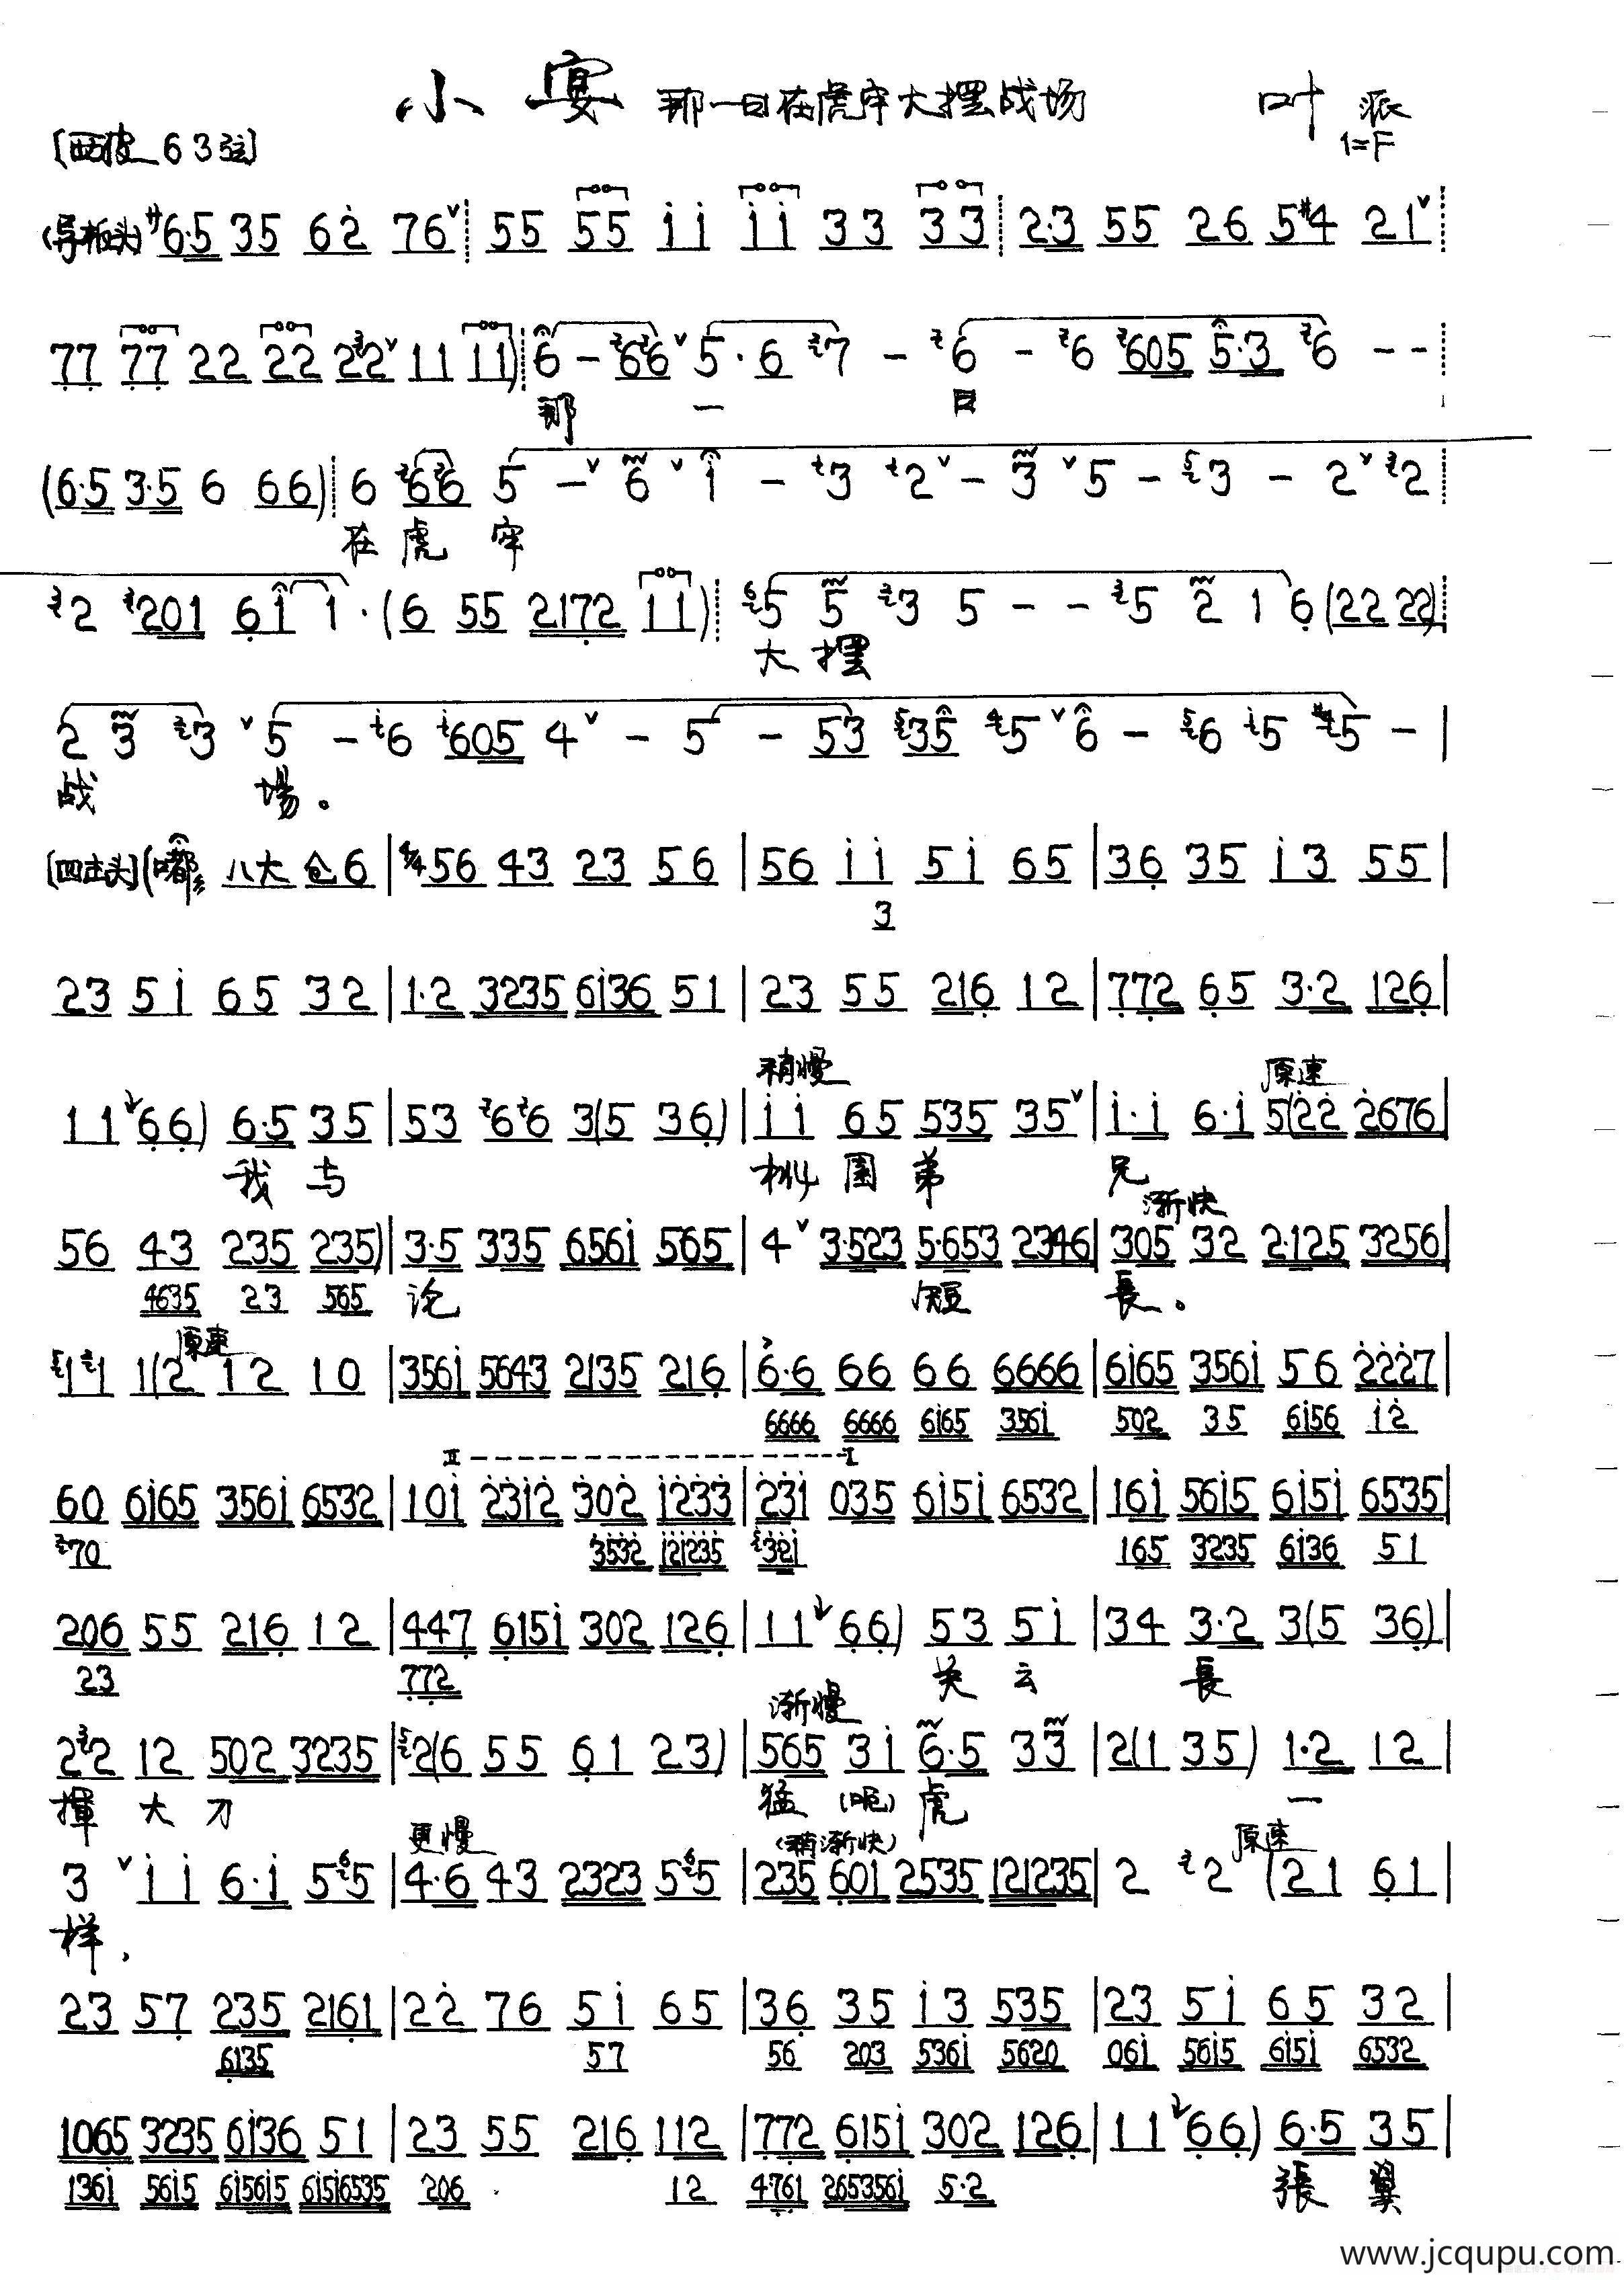 小宴 那一日在虎牢大摆战场 叶派
[西皮 63弦] 1=F
(导板头) サ6·5 35 62̇ 76ˇ ┊ 55 55 i i i i 33 33 ┊ 2·3 55 26 5#4 21ˇ
77 77 22 22 22ˇ 11 11) ┊ 6 - 66ˇ 5·6 7 - 6 - 6 605 5·3 6 - -
那 一 日
(6·5 3·5 6 66) ┊ 6 66 5 -ˇ 6ˇ i - 3 2ˇ - 3ˇ5 - 3 - 2ˇ2
在虎牢
2 201 6i 1·(6 55 2172 11) ┊ 5 5 3 5 - - 5 2 1 6 (22 22)
大摆
2 3 3ˇ5 - 6 605 4ˇ - 5 - 53 35 5ˇ6 - 6 5 5 - |
战 場。
[四击头] (嘟 八大 仓6 | 4/4 56 43 23 56 | 56 i i 5i 65 | 36 35 i3 55 |
3
23 5i 65 32 | 1·2 3235 6i36 51 | 23 55 216 12 | 772 65 3·2 126 |
稍慢 原速
11 66) 6·5 35 | 53 66 3(5 36) | i i 65 535 35ˇ | i·i 6·i 5(2̇2̇ 2̇676 |
我与 桃園弟 兄
渐快
56 43 235 235) | 3·5 335 656i 565 | 4ˇ 3·523 5·653 2346 | 305 32 2·125 3256 |
4635 23 565 论 短 長。
原速
11 1(2 12 10 | 356i 5643 2135 216 | 6·6 66 66 6666 | 6i65 356i 56 2̇2̇2̇7 |
6666 6666 6i65 356i 502 35 6i56 i2̇
II I
60 6i65 356i 6532 | 10i 2̇3̇i2̇ 3̇02̇ i2̇3̇3̇ | 2̇3̇i 035 6i5i 6532 | 16i 56i5 6i5i 6535 |
70 3̇5̇3̇2̇ i2̇i2̇3̇5̇ 3̇2̇i 165 3235 6i36 51
206 55 216 12 | 447 615i 302 126 | 11 66) 53 5i | 34 3·2 3(5 36) |
23 772 关云 長
渐慢
22 12 502 3235 | 2(6 55 61 23) | 565 3i 6·5 33 | 2(1 35) 1·2 12 |
揮大刀 猛(呃)虎 一
更慢 (稍渐快) 原速
3ˇ i i 6·i 55 | 4·6 43 2323 55 | 235 601 2535 121235 | 2 2 (21 61 |
样,
23 57 235 2161 | 22̇ 76 5i 65 | 36 35 i3 535 | 23 5i 65 32 |
6135 57 56 203 536i 5620 06i 56i5 6i5i 6532
1065 3235 6i36 51 | 23 55 216 112 | 772 615i 302 126 | 11 66) 6·5 35 |
136i 56i5 6i56i5 6i5i6535 206 12 4·761 265356i 5·2 張翼
www.jcqupu.com